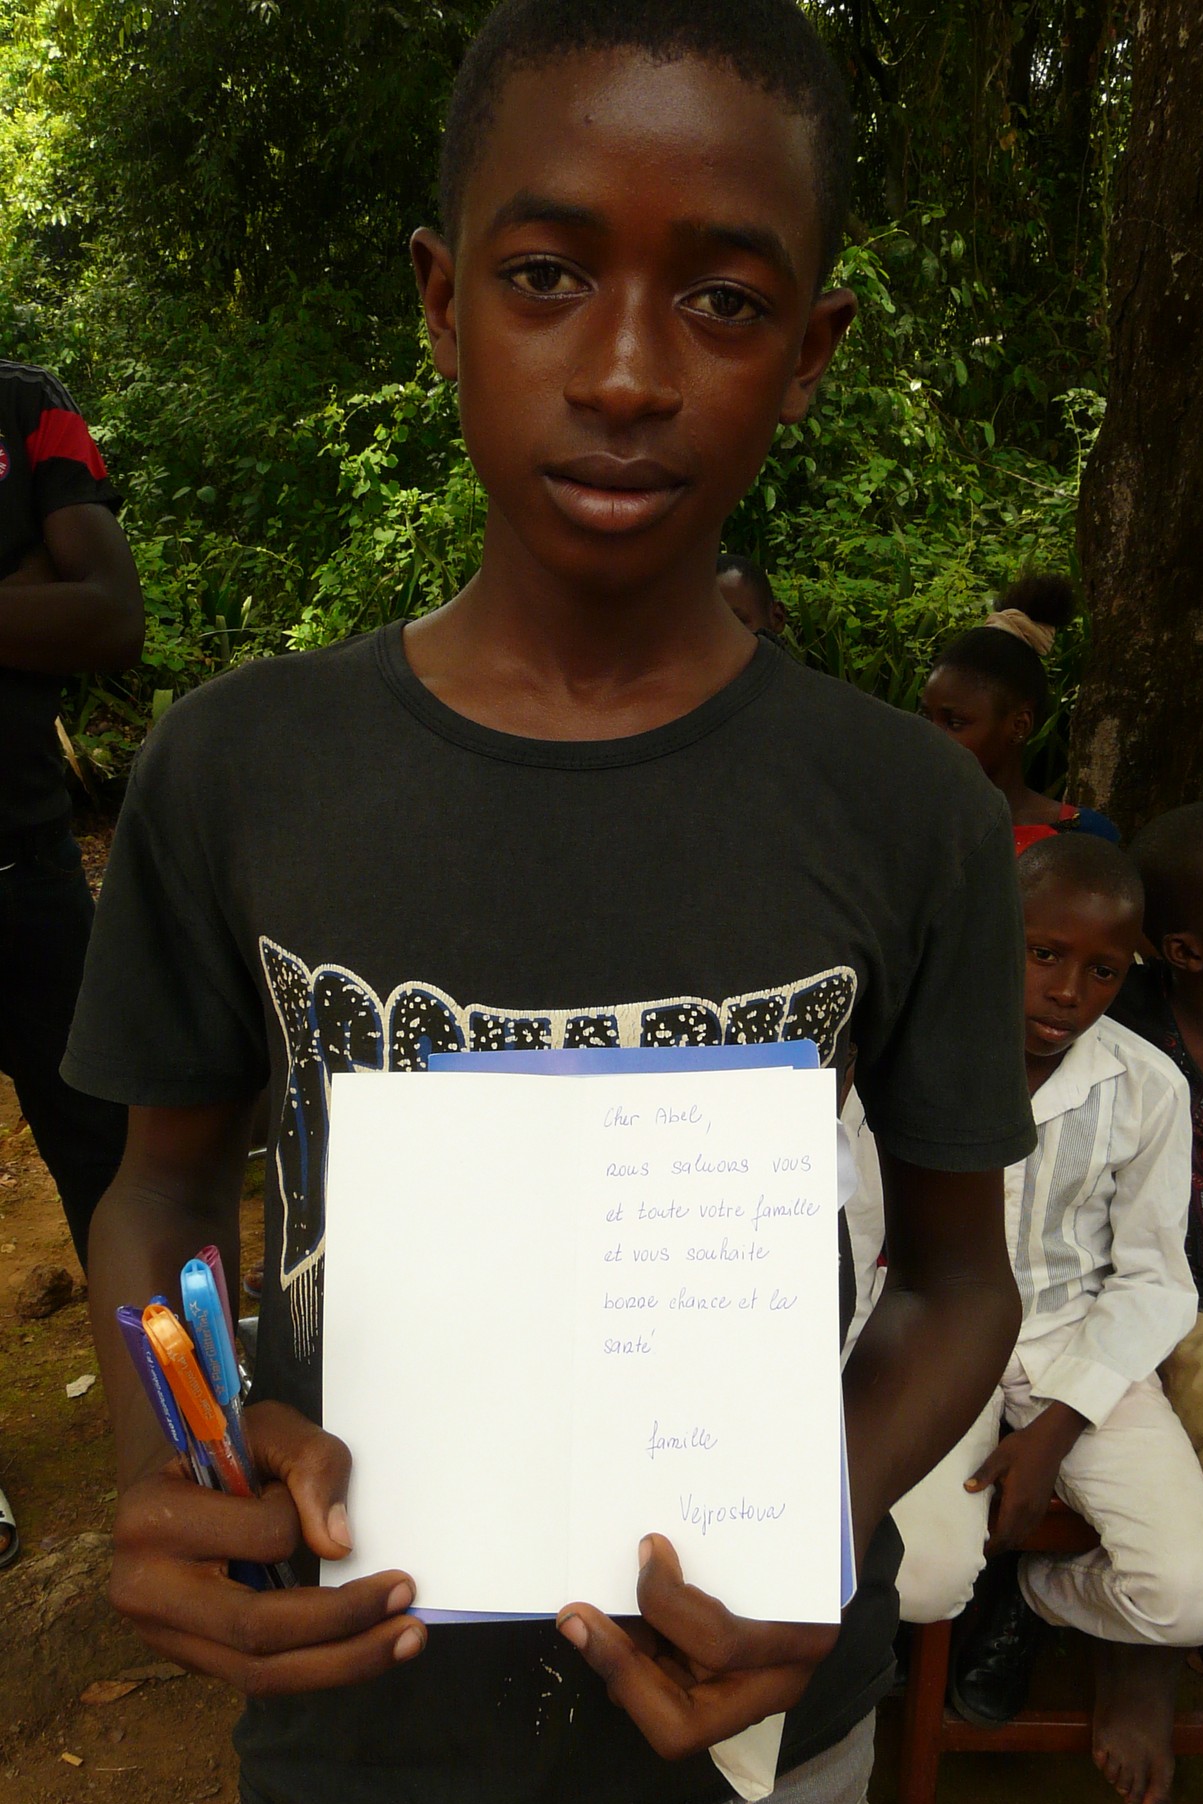 Cher Abel,
nous saluons vous
et toute votre famille
et vous souhaite
bonne chance et la
santé
famille
Vejrostova